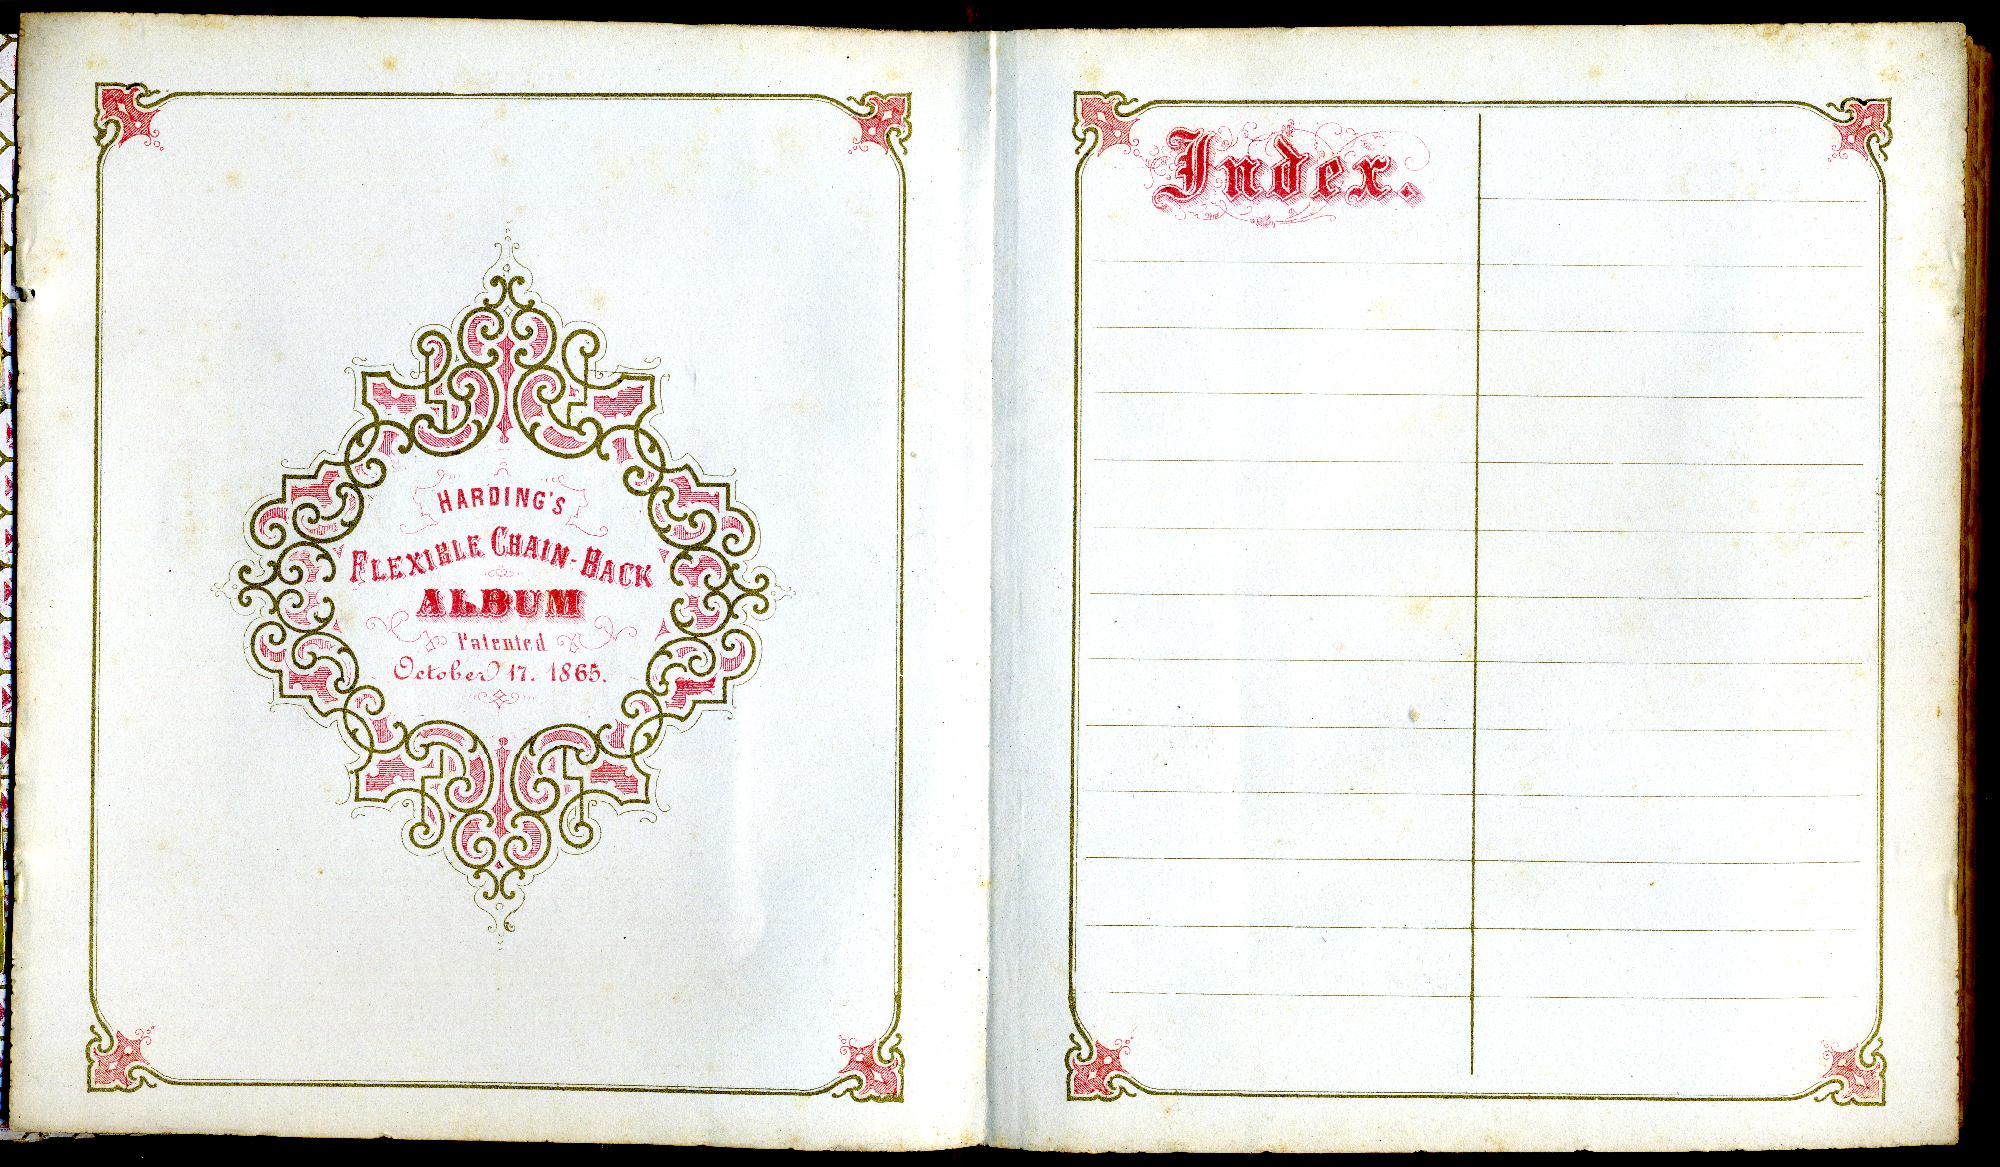 HARDING'S
FLEXIBLE CHAIN-BACK
ALBUM
Patented
October 17. 1865.
Index.